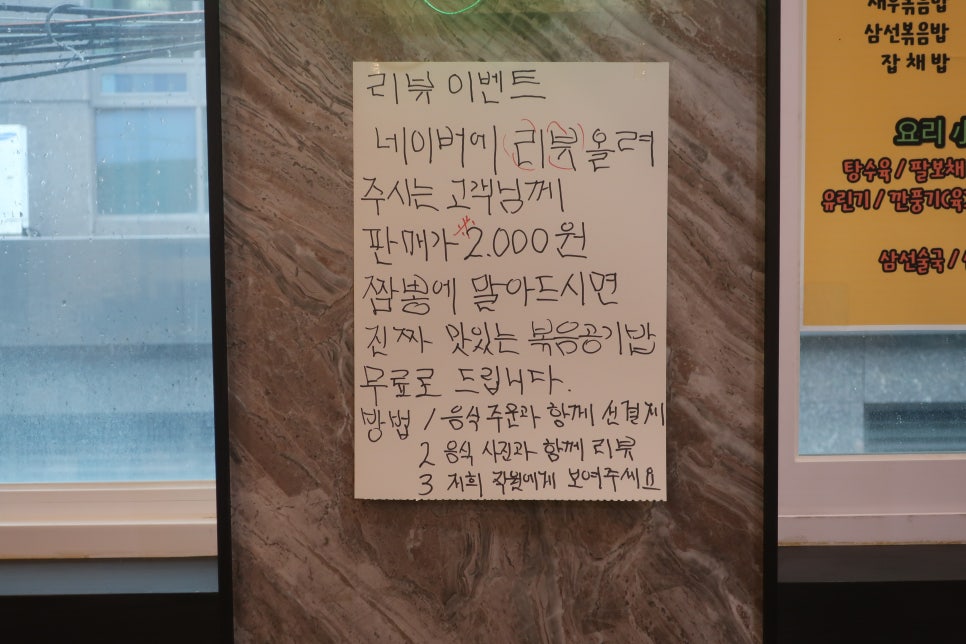 리뷰 이벤트
네이버에 리뷰 올려
주시는 고객님께
판매가 *2.000원
짬뽕에 말아드시면
진짜 맛있는 볶음공기밥
무료로 드립니다.
방법 1 음식 주문과 함께 선결제
2 음식 사진과 함께 리뷰
3 저희 직원에게 보여주세요
새우볶음밥
삼선볶음밥
잡채밥
요리
탕수육 / 팔보채
유린기 / 깐풍기(육
삼선술국 /